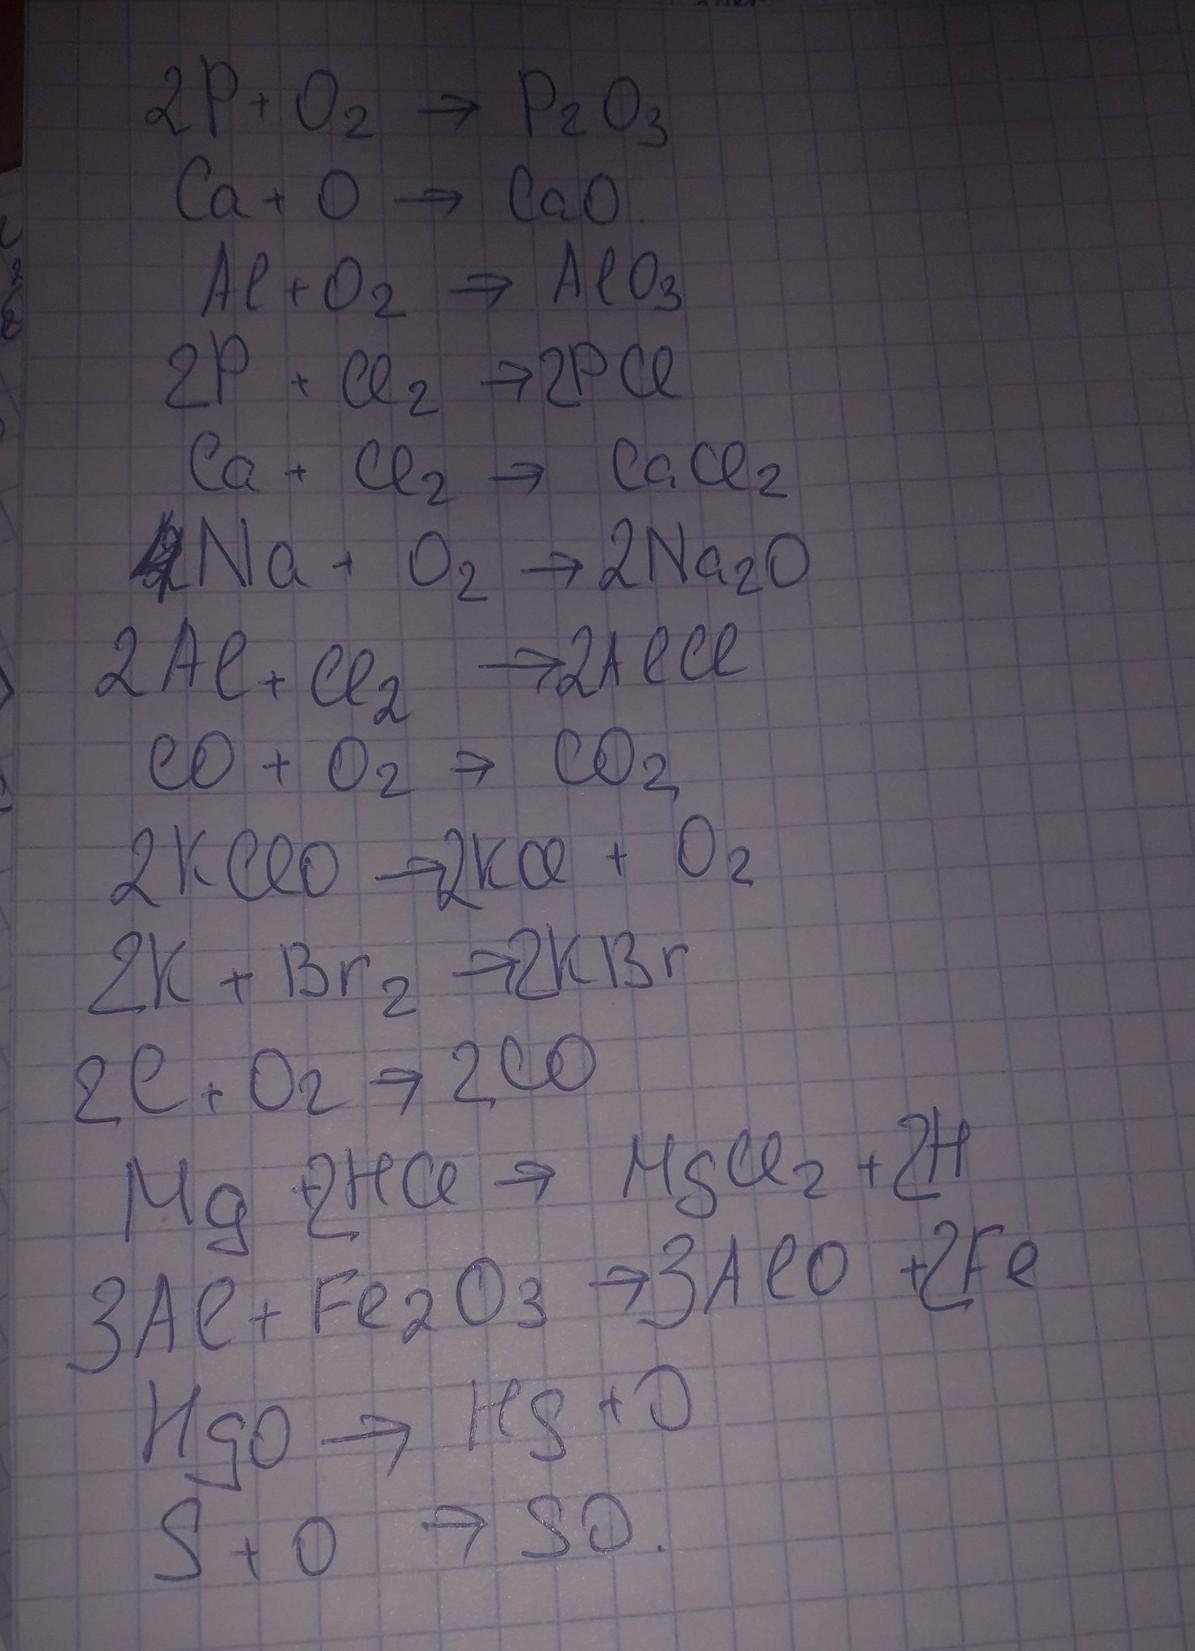 2P + O₂ → P₂O₃
Ca + O → CaO.
Al + O₂ → AlO₃
2P + Cl₂ → 2PCl
Ca + Cl₂ → CaCl₂
4Na + O₂ → 2Na₂O
2Al + Cl₂ → 2AlCl
CO + O₂ → CO₂
2KClO → 2KCl + O₂
2K + Br₂ → 2KBr
2C + O₂ → 2CO
Mg + 2HCl → MgCl₂ + 2H
3Al + Fe₂O₃ → 3AlO + 2Fe
HgO → Hg + O
S + O → SO.